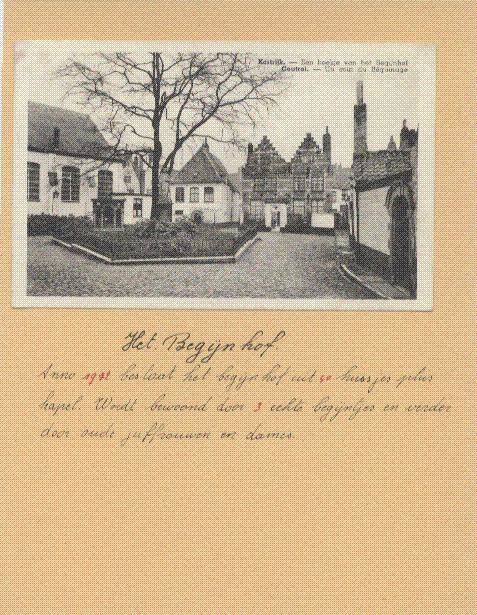 Kortrijk. — Een hoekje van het Begijnhof
Courtrai. — Un coin du Béguinage
Het. Begijnhof.
Anno bestaat het begijnhof uit huisjes plus
kapel. Wordt bewoond door 3 echte begijntjes en verder
door oude juffrouwen en dames.